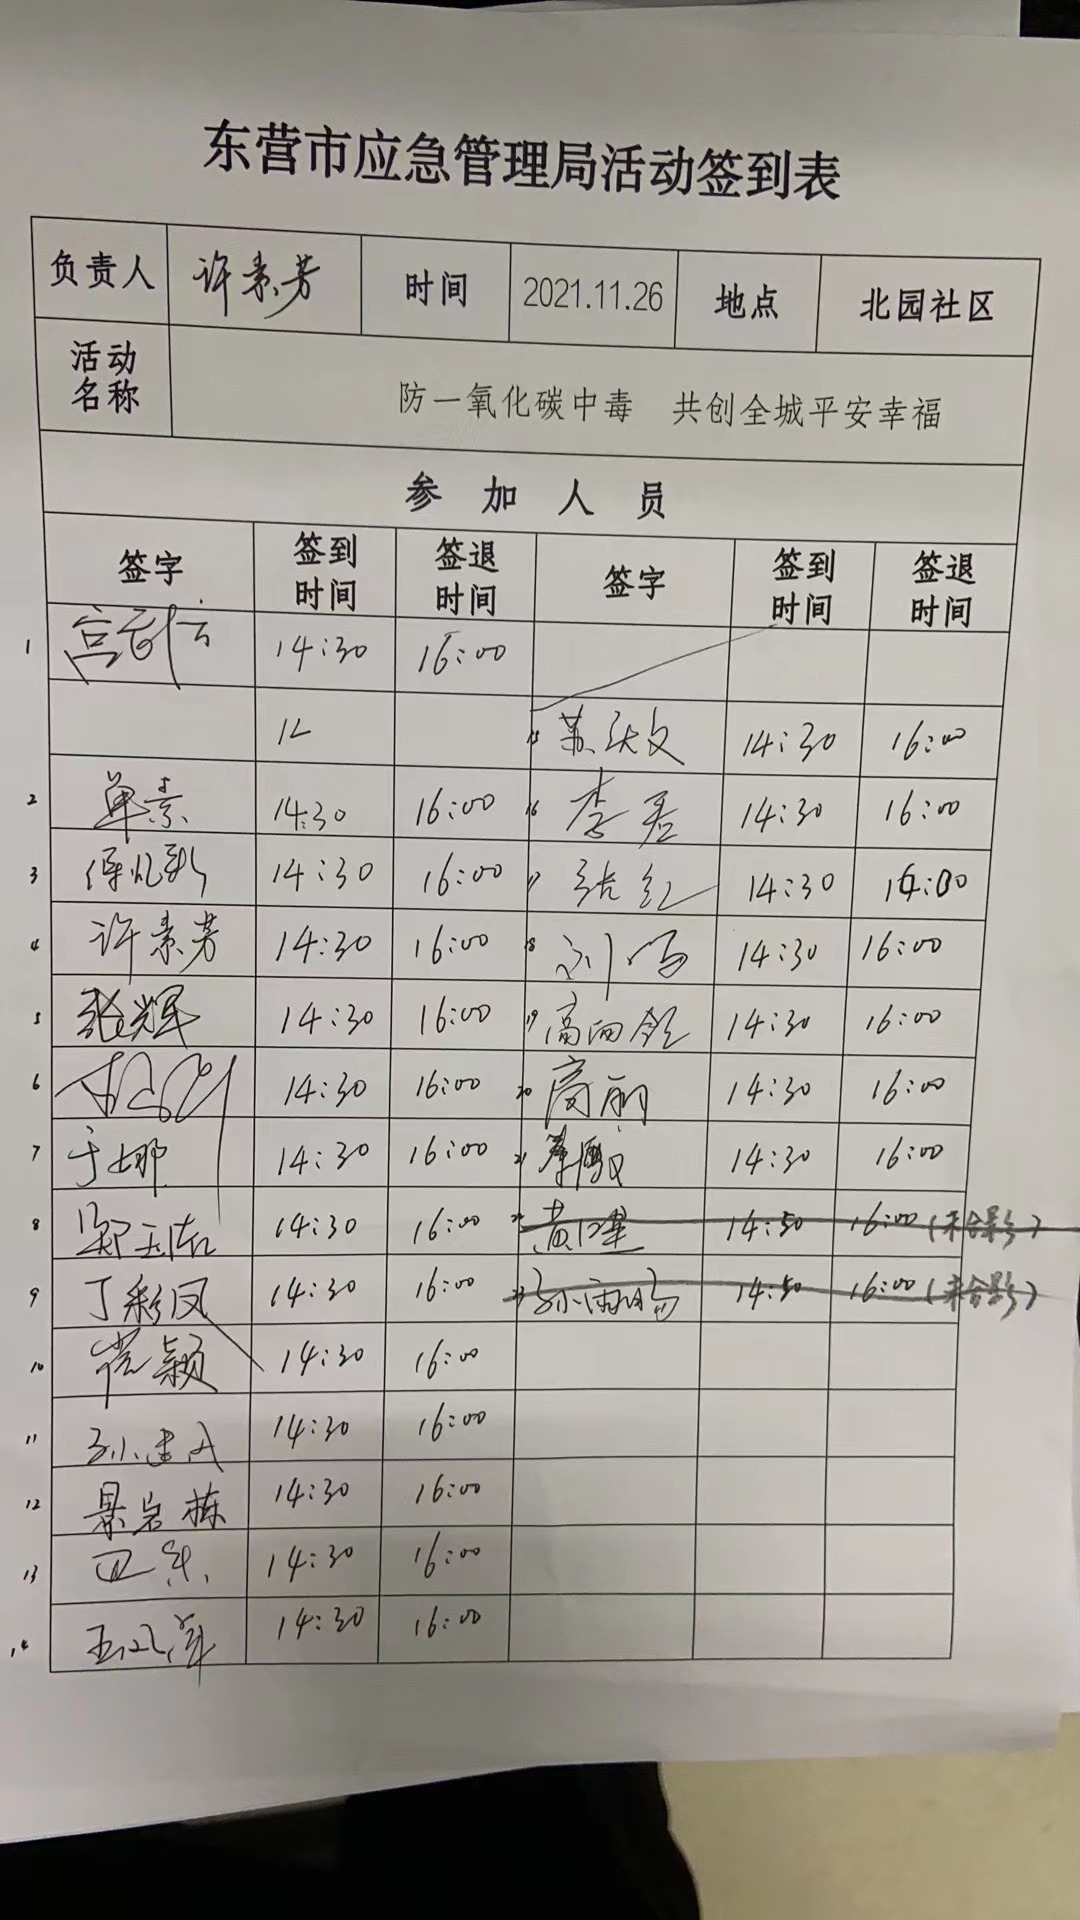 东营市应急管理局活动签到表
负责人 许素芳 时间 2021.11.26 地点 北园社区
活动名称 防一氧化碳中毒 共创全城平安幸福
参加人员
签字 签到时间 签退时间 签字 签到时间 签退时间
1 14:30 16:00
12 15 16:00 14:30
2 单素 14:30 16:00 16 李君 14:30 16:00
3 14:30 16:00 17 张红 14:30 16:00
4 许素芳 14:30 16:00 18 14:30 16:00
5 张辉 14:30 16:00 19 14:30 16:00
6 14:30 16:00 20 高丽 14:30 16:00
7 于娜 14:30 16:00 21 14:30 16:00
8 14:30 16:00 22 14:50 16:00(未合影)
9 丁彩凤 14:30 16:00 23 14:50 16:00(未合影)
10 14:30 16:00
11 14:30 16:00
12 景岩栋 14:30 16:00
13 14:30 16:00
14 14:30 16:00